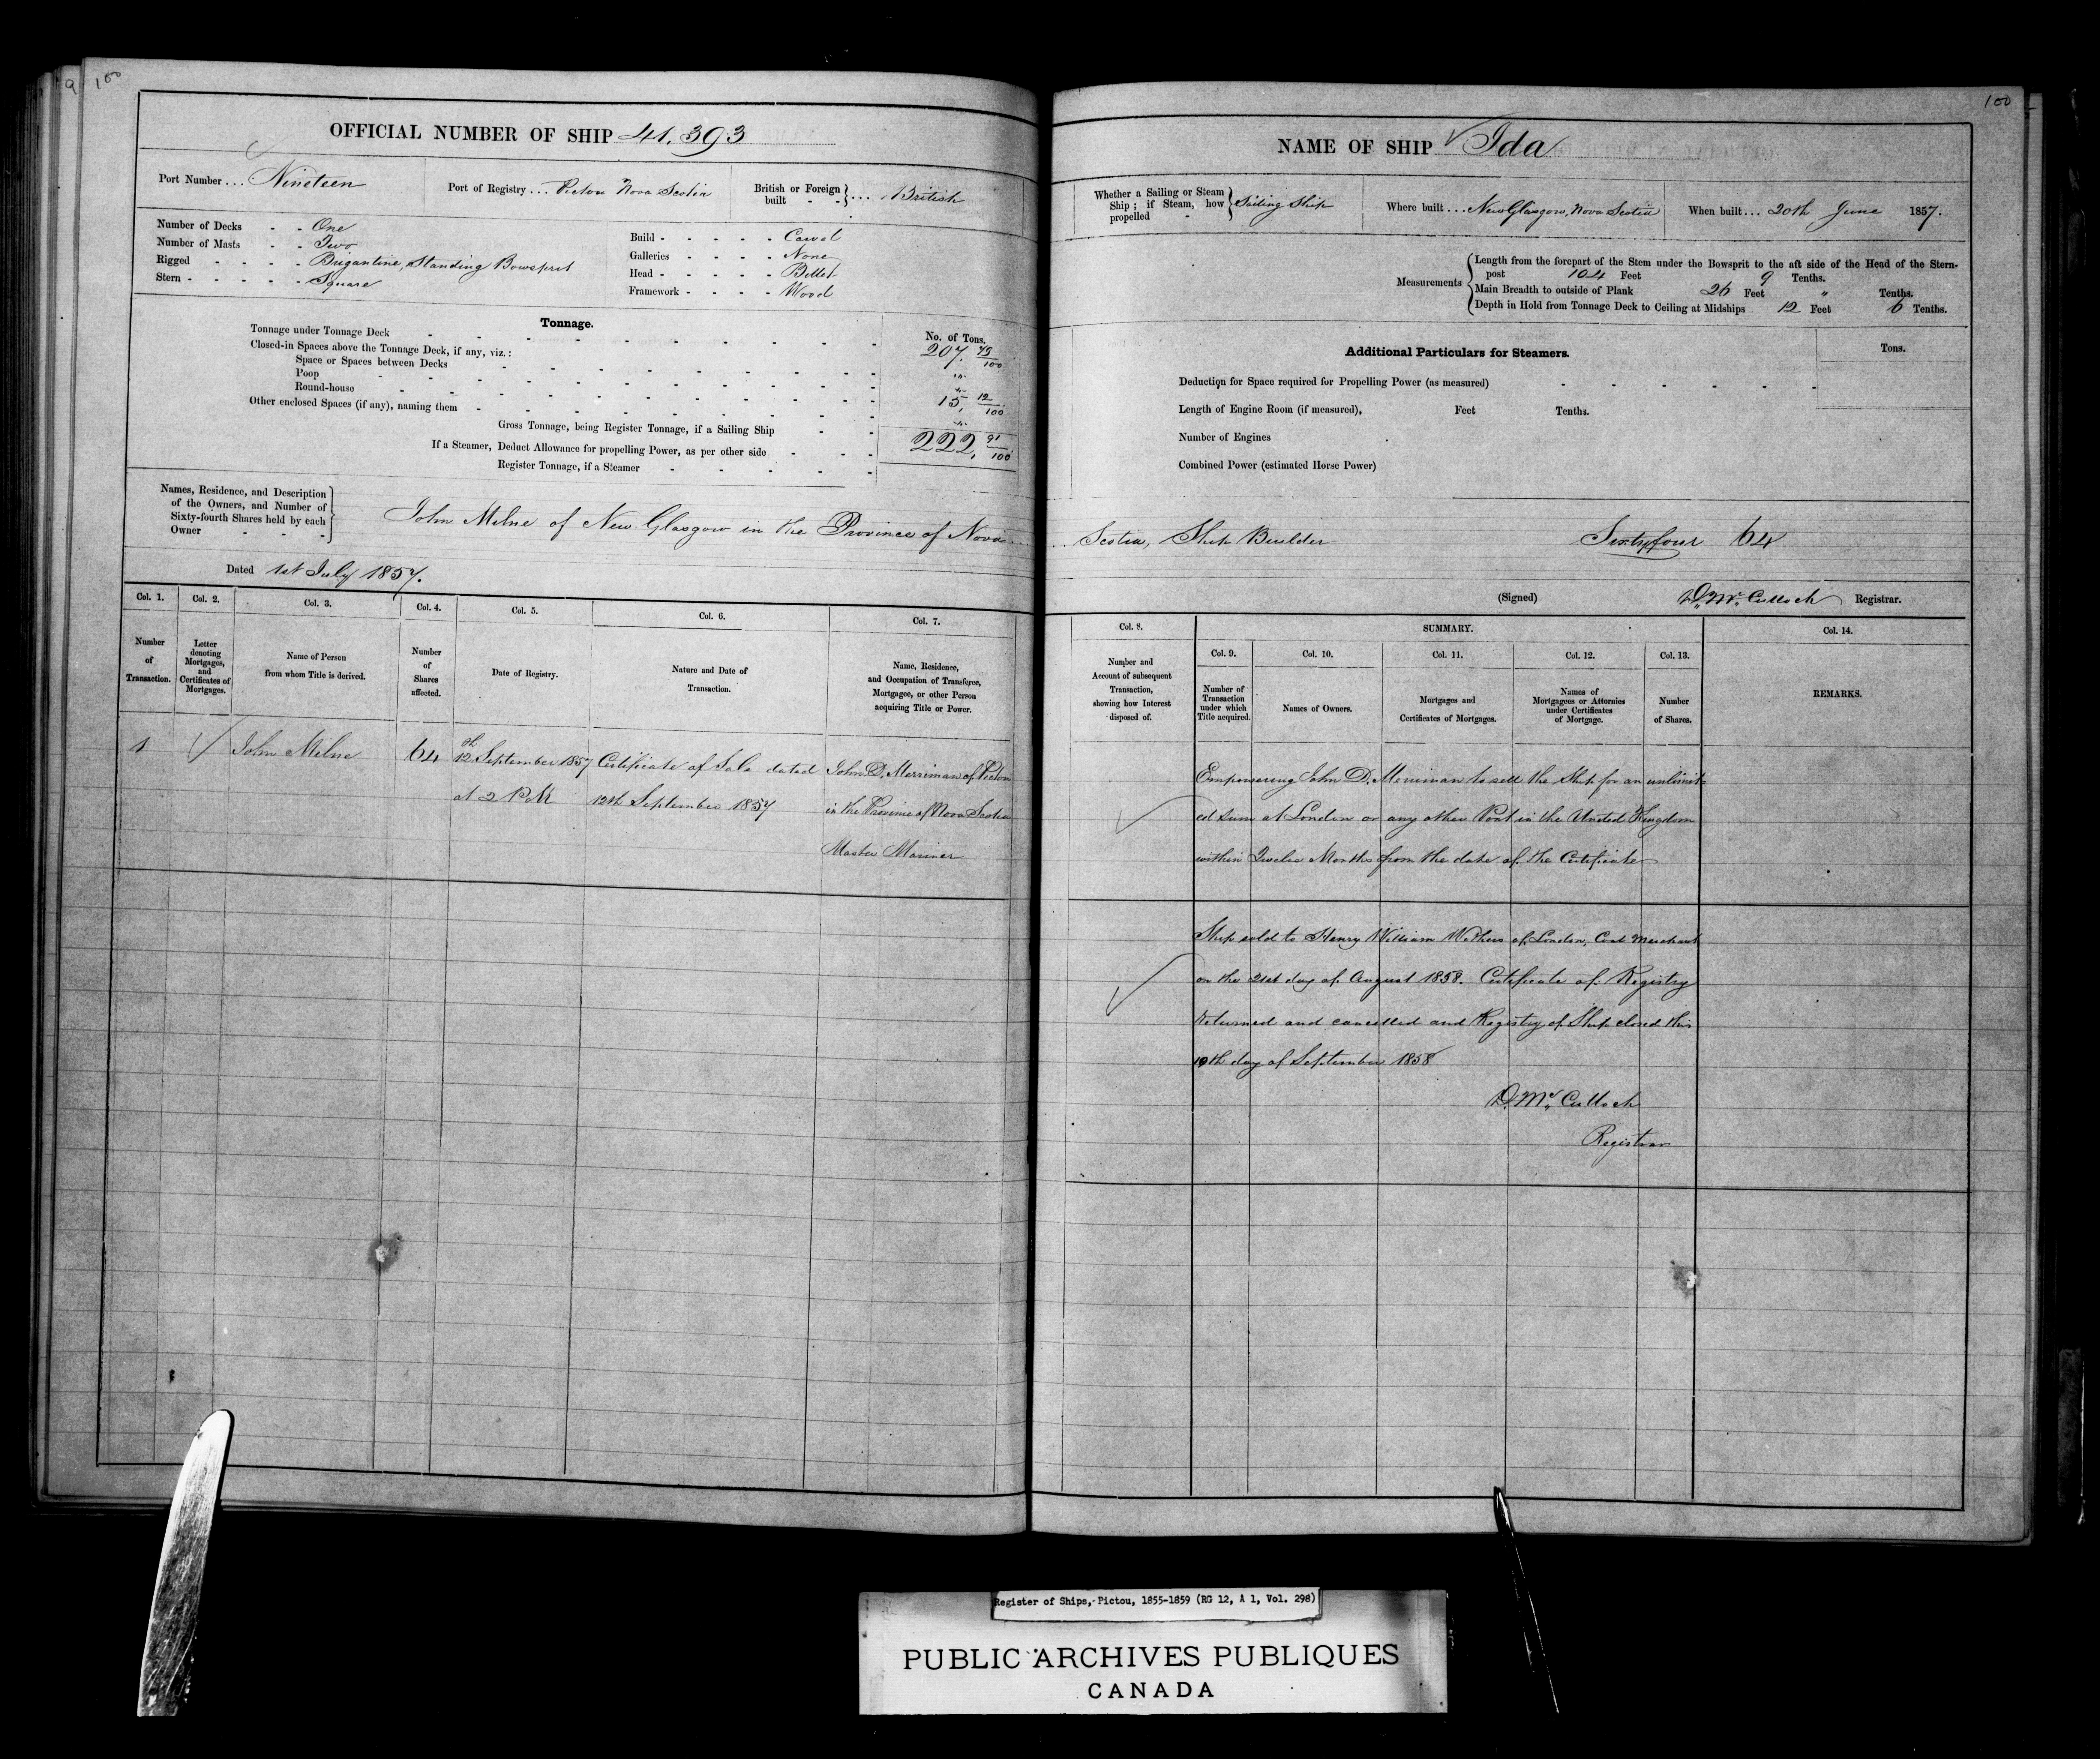 100
100
OFFICIAL NUMBER OF SHIP 41,393
Port Number ... Nineteen
Port of Registry ... Pictou Nova Scotia
British or Foreign built - - } .... British
Number of Decks - - One
Number of Masts - - Two
Rigged - - - - Brigantine, Standing Bowsprit
Stern - - - - - Square
Build - - - - - Carvel
Galleries - - - - None
Head - - - - - Billet
Framework - - - - Wood
Tonnage.
No. of Tons.
Tonnage under Tonnage Deck - - - - 207. 79/100
Closed-in Spaces above the Tonnage Deck, if any, viz.:
Space or Spaces between Decks - - - - "
Poop - - - - "
Round-house - - - - 15, 12/100
Other enclosed Spaces (if any), naming them - - - - "
Gross Tonnage, being Register Tonnage, if a Sailing Ship - - 222, 91/100
If a Steamer, Deduct Allowance for propelling Power, as per other side - - -
Register Tonnage, if a Steamer - - - - -
Names, Residence, and Description of the Owners, and Number of Sixty-fourth Shares held by each Owner - - - }
John Milne of New Glasgow in the Province of Nova
Dated 1st July 1857.
Col. 1. Col. 2. Col. 3. Col. 4. Col. 5. Col. 6. Col. 7.
Number of Transaction.
Letter denoting Mortgages, and Certificates of Mortgages.
Name of Person from whom Title is derived.
Number of Shares affected.
Date of Registry.
Nature and Date of Transaction.
Name, Residence, and Occupation of Transferee, Mortgagee, or other Person acquiring Title or Power.
1 John Milne 64 12th September 1857 Certificate of Sale dated John D. Merriman of Pictou
at 2 P.M 12th September 1857 in the Province of Nova Scotia
Master Mariner
100
NAME OF SHIP Ida
Whether a Sailing or Steam Ship; if Steam, how propelled - } Sailing Ship
Where built ... New Glasgow, Nova Scotia
When built ... 20th June 1857.
Measurements { Length from the forepart of the Stem under the Bowsprit to the aft side of the Head of the Stern-
post 104 Feet 9 Tenths.
Main Breadth to outside of Plank 26 Feet " Tenths.
Depth in Hold from Tonnage Deck to Ceiling at Midships 12 Feet 6 Tenths.
Additional Particulars for Steamers.
Tons.
Deduction for Space required for Propelling Power (as measured) - - - - - -
Length of Engine Room (if measured), Feet Tenths.
Number of Engines
Combined Power (estimated Horse Power)
Scotia, Ship Builder Sixtyfour 64
(Signed) D. McCulloch Registrar.
Col. 8. SUMMARY. Col. 14.
Col. 9. Col. 10. Col. 11. Col. 12. Col. 13.
Number and Account of subsequent Transaction, showing how Interest disposed of.
Number of Transaction under which Title acquired.
Names of Owners.
Mortgages and Certificates of Mortgages.
Names of Mortgagees or Attornies under Certificates of Mortgage.
Number of Shares.
REMARKS.
Empowering John D. Merriman to sell the Ship for an unlimit-
ed sum at London or any other Port in the United Kingdom
within Twelve Months from the date of the Certificate
Ship sold to Henry William of London, Coal Merchant
on the 21st day of August 1858. Certificate of Registry
Returned and cancelled and Registry of Ship closed this
10th day of September 1858
D. McCulloch
Registrar
Register of Ships, Pictou, 1855-1859 (RG 12, A 1, Vol. 298)
PUBLIC ARCHIVES PUBLIQUES
CANADA